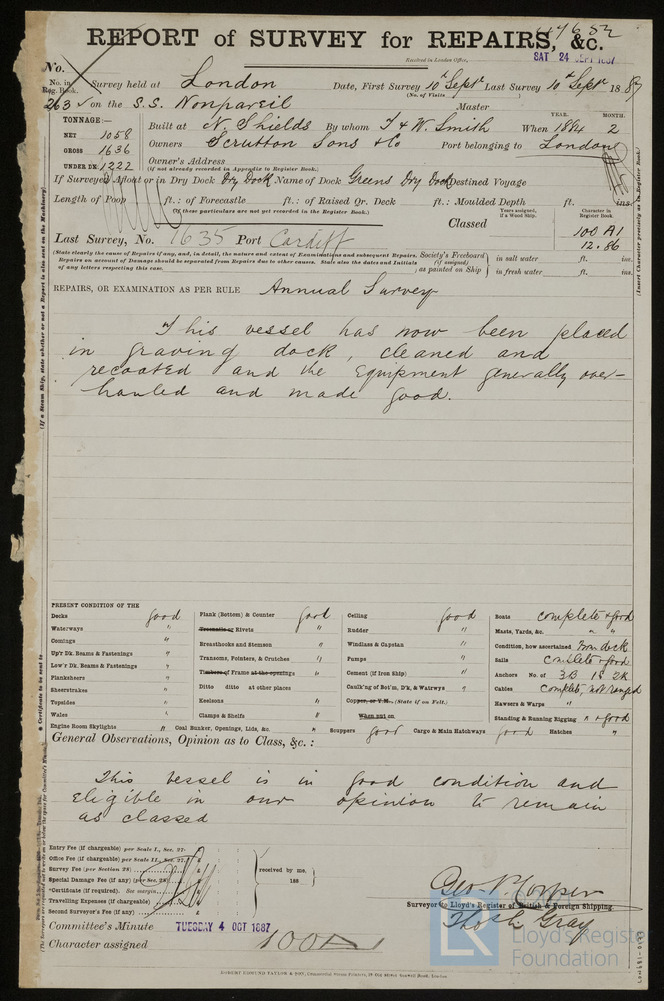 REPORT of SURVEY for REPAIRS, &c.
Received in London Office, SAT 24 SEPT 1887
No.
No. in Reg. Book. Survey held at London Date, First Survey 10th Sept Last Survey 10th Sept 1887
(No. of Visits
263 on the S.S. Nonpareil Master
TONNAGE:—
NET 1058
GROSS 1636
UNDER DK. 1222
Built at N. Shields By whom T & W. Smith When 1884 2
YEAR. MONTH.
Owners Scrutton Sons & Co Port belonging to London
Owner's Address
(If not already recorded in Appendix to Register Book.)
If Surveyed Afloat or in Dry Dock Dry Dock Name of Dock Greens Dry Dock Destined Voyage
Length of Poop ft.: of Forecastle ft.: of Raised Qr. Deck ft.: Moulded Depth ft. ins.
(If these particulars are not yet recorded in the Register Book.)
Years assigned, if a Wood Ship.
Character in Register Book
Classed 100 A1
12.86
Last Survey, No. 1635 Port Cardiff
(State clearly the cause of Repairs if any, and, in detail, the nature and extent of Examinations and subsequent Repairs.
Repairs on account of Damage should be separated from Repairs due to other causes. State also the dates and Initials
of any letters respecting this case.
Society's Freeboard (if assigned) as painted on Ship
in salt water ft. ins.
in fresh water ft. ins.
REPAIRS, OR EXAMINATION AS PER RULE Annual Survey
This vessel has now been placed
in graving dock, cleaned and
recoated and the Equipment generally over-
hauled and made good.
PRESENT CONDITION OF THE
Decks good
Waterways "
Comings "
Up'r Dk. Beams & Fastenings "
Low'r Dk. Beams & Fastenings "
Planksheers "
Sheerstrakes "
Topsides "
Wales "
Engine Room Skylights "
Plank (Bottom) & Counter good
Treenails or Rivets "
Breasthooks and Stemson "
Transoms, Pointers, & Crutches "
Timbers of Frame at the openings "
Ditto ditto at other places "
Keelsons "
Clamps & Shelfs "
Coal Bunker, Openings, Lids, &c. "
Ceiling good
Rudder "
Windlass & Capstan "
Pumps "
Cement (if Iron Ship) "
Caulk'ng of Bot'm, D'k, & Watrwys "
Copper, or Y.M. (State if on Felt.)
When put on
Scuppers good Cargo & Main Hatchways good Hatches "
Boats complete & good
Masts, Yards, &c. " "
Condition, how ascertained From deck
Sails complete & good
Anchors No. of 3B 1S 2K
Cables complete, not ranged
Hawsers & Warps "
Standing & Running Rigging " & good
General Observations, Opinion as to Class, &c.:
This vessel is in good condition and
Eligible in our opinion to remain
as classed
Entry Fee (if chargeable) per Scale I., Sec. 27.
Office Fee (if chargeable) per Scale II., Sec. 27.
Survey Fee (per Section 28)
Special Damage Fee (if any) (per Sec. 28)
*Certificate (if required). See margin
Travelling Expenses (if chargeable)
Second Surveyor's Fee (if any)
received by me,
188
Surveyor to Lloyd's Register of British & Foreign Shipping.
Thos. Gray
Committee's Minute TUESDAY 4 OCT 1887
Character assigned 100A1
ROBERT EDMUND TAYLOR & SON
LR
Lloyd's Register
Foundation